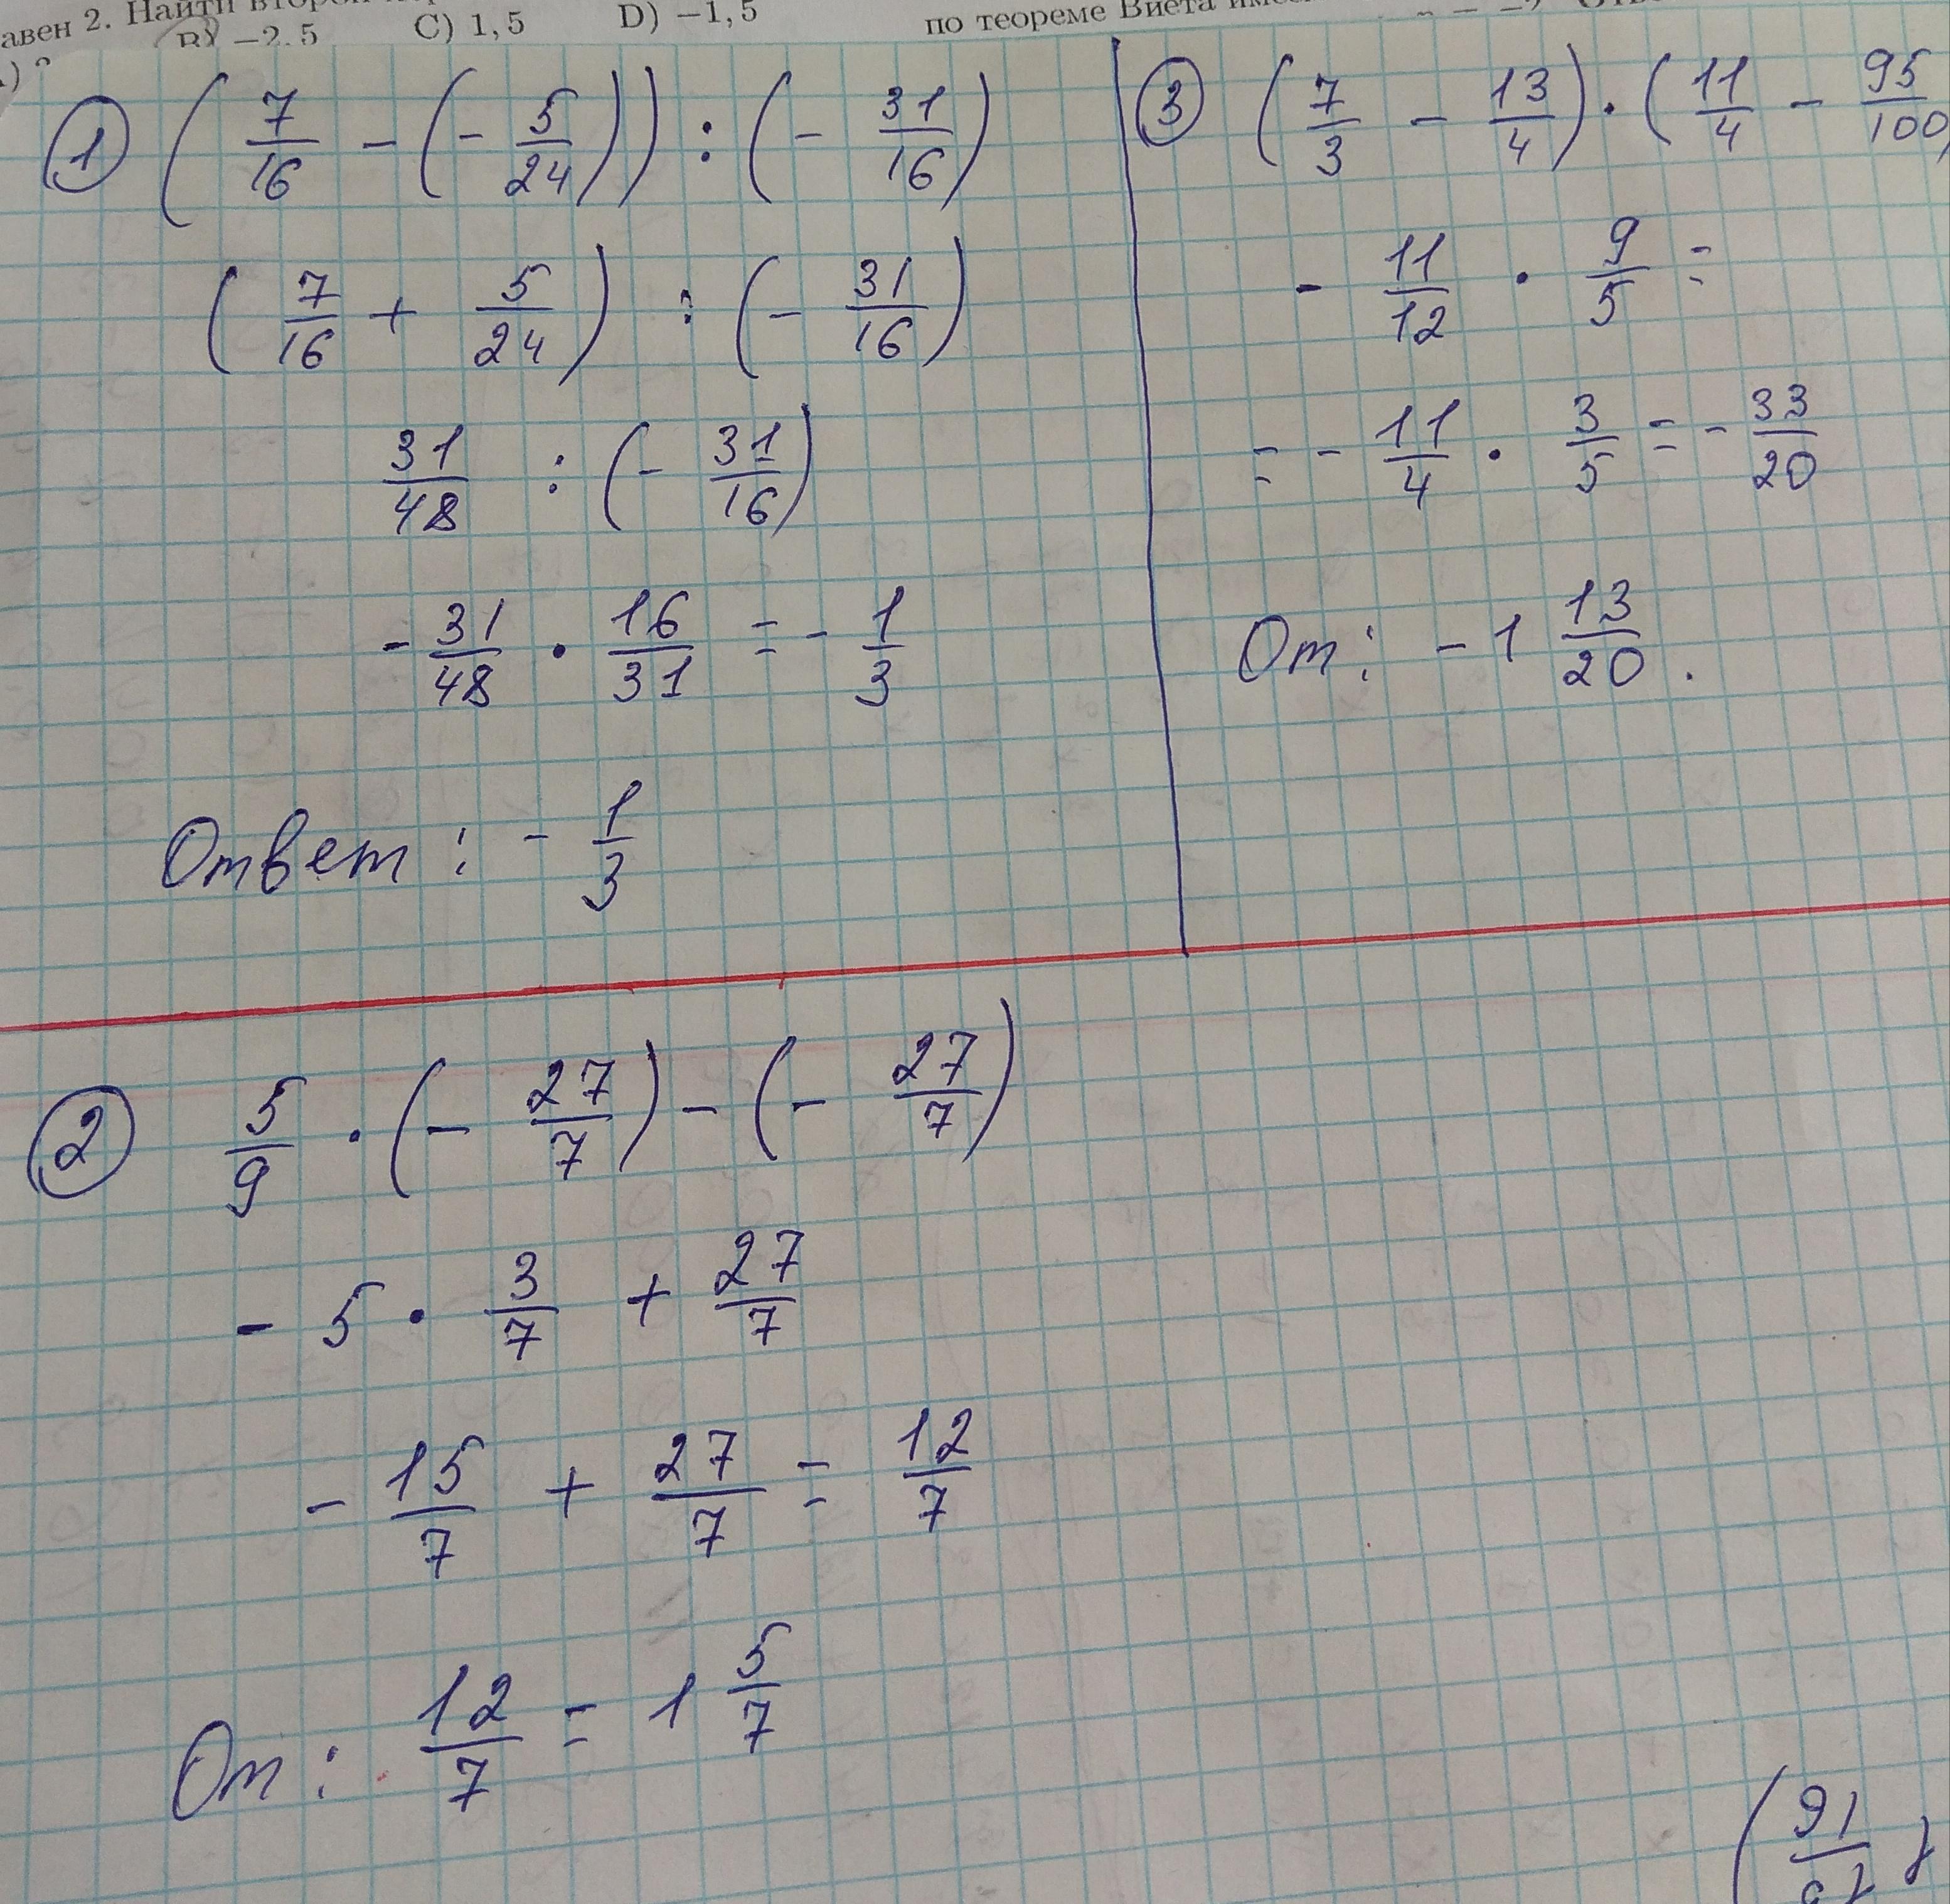 авен 2. Найти
B) −2, 5 C) 1, 5 D) −1, 5
по теореме Виета
① (7/16 − (− 5/24)) : (− 31/16)
(7/16 + 5/24) : (− 31/16)
31/48 : (− 31/16)
− 31/48 · 16/31 = − 1/3
Ответ : − 1/3
③ (7/3 − 13/4) · (11/4 − 95/100)
− 11/12 · 9/5 =
= − 11/4 · 3/5 = − 33/20
От : − 1 13/20 .
② 5/9 · (− 27/7) − (− 27/7)
− 5 · 3/7 + 27/7
− 15/7 + 27/7 = 12/7
От : 12/7 = 1 5/7